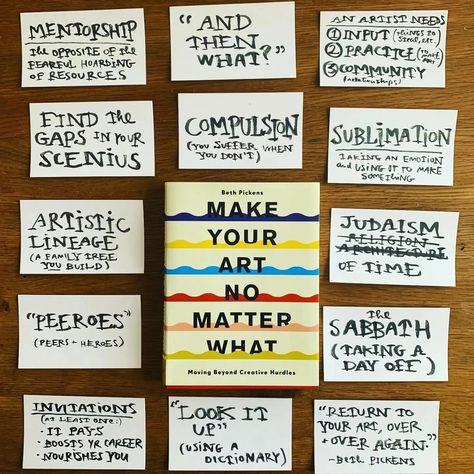 MENTORSHIP
THE OPPOSITE OF THE
FEARFUL HOARDING
OF RESOURCES
"AND
THEN
WHAT?"
AN ARTIST NEEDS
① INPUT (THINGS TO
STEAL, ETC.
② PRACTICE (MAKE
ART)
③ COMMUNITY
(RELATIONSHIPS)
FIND THE
GAPS IN YOUR
SCENIUS
COMPULSION
(YOU SUFFER WHEN
YOU DON'T)
SUBLIMATION
TAKING AN EMOTION
AND USING IT TO MAKE
SOMETHING
ARTISTIC
LINEAGE
(A FAMILY TREE
YOU BUILD)
Beth Pickens
MAKE
YOUR
ART
NO
MATTER
WHAT
Moving Beyond Creative Hurdles
JUDAISM
RELIGION
ARCHITECTURE
OF TIME
"PEEROES"
(PEERS + HEROES)
THE
SABBATH
(TAKING A
DAY OFF)
INVITATIONS
(AT LEAST ONE:)
· IT PAYS
· BOOSTS YR CAREER
· NOURISHES YOU
"LOOK IT
UP"
(USING A
DICTIONARY)
"RETURN TO
YOUR ART, OVER
+ OVER AGAIN."
- BETH PICKENS